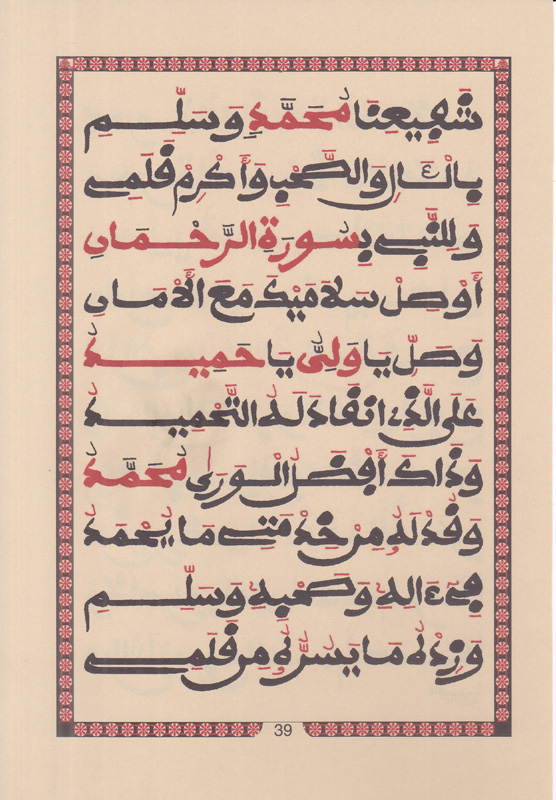 شَفِيعِنَا مُحَمَّدٍ وَسَلِّمِ
بِالْآلِ وَالصَّحْبِ وَأَكْرِمْ قَلَمِي
وَلِلنَّبِي بِسُورَةِ الرَّحْمَانِ
أَوْصِلْ سَلَامَيْكَ مَعَ الْأَمَانِ
وَصَلِّ يَا وَلِيُّ يَا حَمِيدُ
عَلَى الَّذِي انْقَادَ لَهُ التَّحْمِيدُ
وَذَاكَ أَفْضَلُ الْوَرَى مُحَمَّدُ
وَقُدْ لَهُ مِنْ خِدْمَتِي مَا يُحْمَدُ
فِي ءَالِهِ وَصَحْبِهِ وَسَلِّمِ
وَزِدْهُ مَا يَسُرُّهُ مِنْ قَلَمِي
39